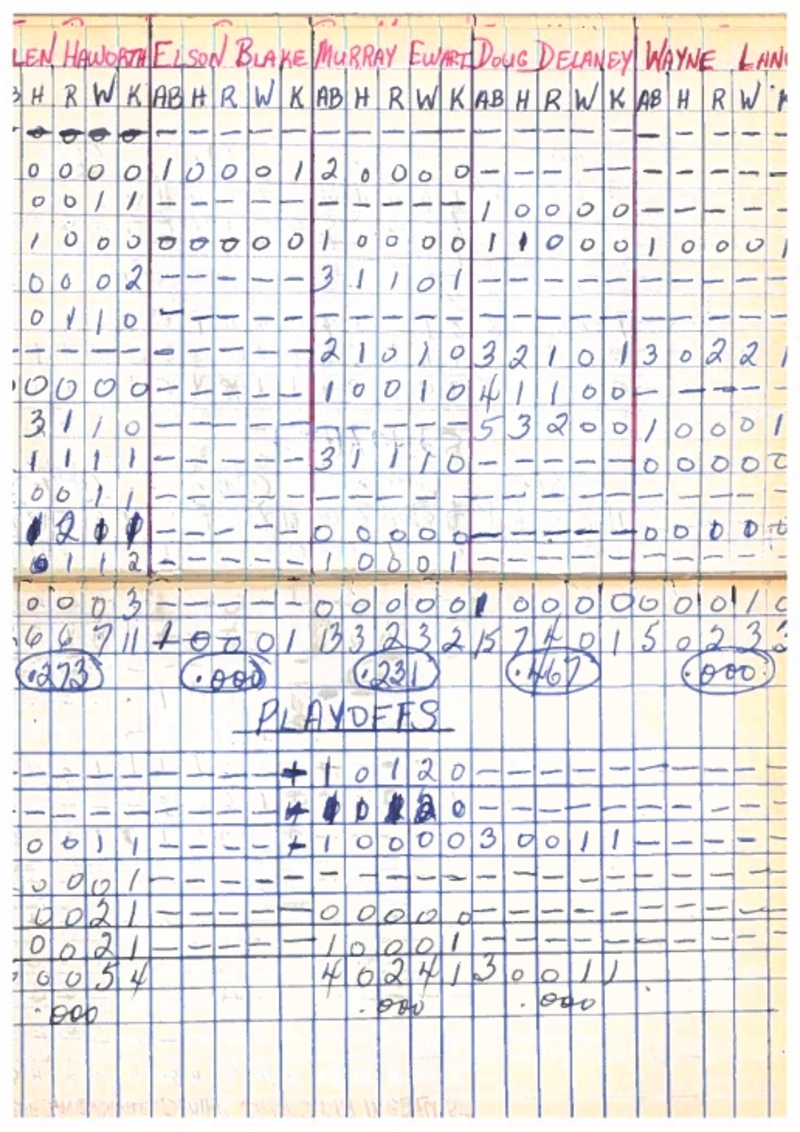 LEN HAWORTH ELSON BLAKE MURRAY EWART DOUG DELANEY WAYNE LAN
H R W K AB H R W K AB H R W K AB H R W K AB H R W
- - - - - - - - - - - - - - - - - -
0 0 0 0 1 0 0 0 1 2 0 0 0 0 - - - - - - - - -
0 0 1 1 - - - - - - - - - - 1 0 0 0 0 - - - -
1 0 0 0 0 0 0 0 0 1 0 0 0 0 1 1 0 0 0 1 0 0 0 1
0 0 0 2 - - - - - 3 1 1 0 1 - - - - - - - - -
0 1 1 0 - - - - - - - - - - - - - - - - - - -
- - - - - - - - - 2 1 0 1 0 3 2 1 0 1 3 0 2 2 1
0 0 0 0 - - - - - 1 0 0 1 0 4 1 1 0 0 - - - -
3 1 1 0 - - - - - - - - - - 5 3 2 0 0 1 0 0 0 1
1 1 1 1 - - - - - 3 1 1 1 0 - - - - - 0 0 0 0 0
0 0 1 1 - - - - - - - - - - - - - - - - - - -
1 2 0 1 - - - - - 0 0 0 0 0 - - - - - 0 0 0 0 0
0 1 1 2 - - - - - 1 0 0 0 1 - - - - - - - - -
0 0 0 3 - - - - - 0 0 0 0 0 1 0 0 0 0 0 0 0 1 0
6 6 7 11 1 0 0 0 1 13 3 2 3 2 15 7 4 0 1 5 0 2 3 3
.273 .000 .231 .467 .000
PLAYOFFS
- - - - - - - - + 1 0 1 2 0 - - - - - - - - -
- - - - - - - - + 1 0 1 2 0 - - - - - - - - -
0 0 1 1 - - - - + 1 0 0 0 0 3 0 0 1 1 - - - -
0 0 0 1 - - - - - - - - - - - - - - - - - - -
0 0 2 1 - - - - - 0 0 0 0 0 - - - - - - - - -
0 0 2 1 - - - - - 1 0 0 0 1 - - - - - - - - -
0 0 5 4 4 0 2 4 1 3 0 0 1 1
.000 .000 .000